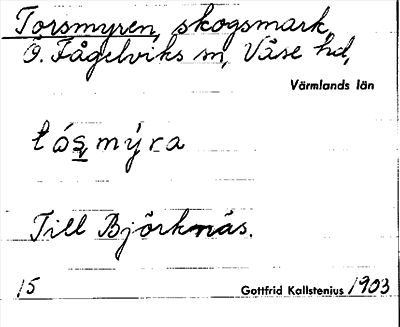 Torsmyren, skogsmark,
Ö. Fågelviks sn, Väse hd,
Värmlands län
tós̬mýra
Till Björknäs.
15 Gottfrid Kallstenius 1903